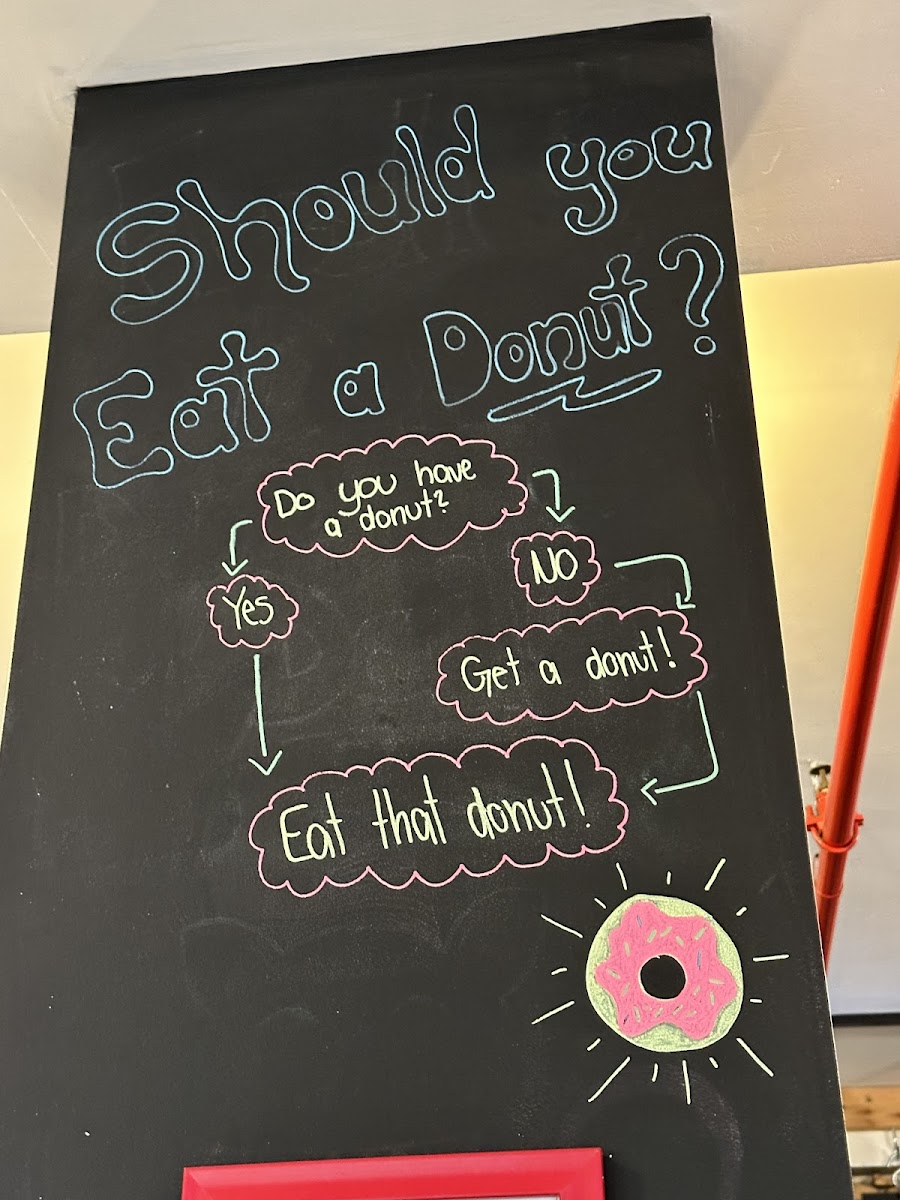 Should you
Eat a Donut?
Do you have
a donut?
Yes
No
Get a donut!
Eat that donut!